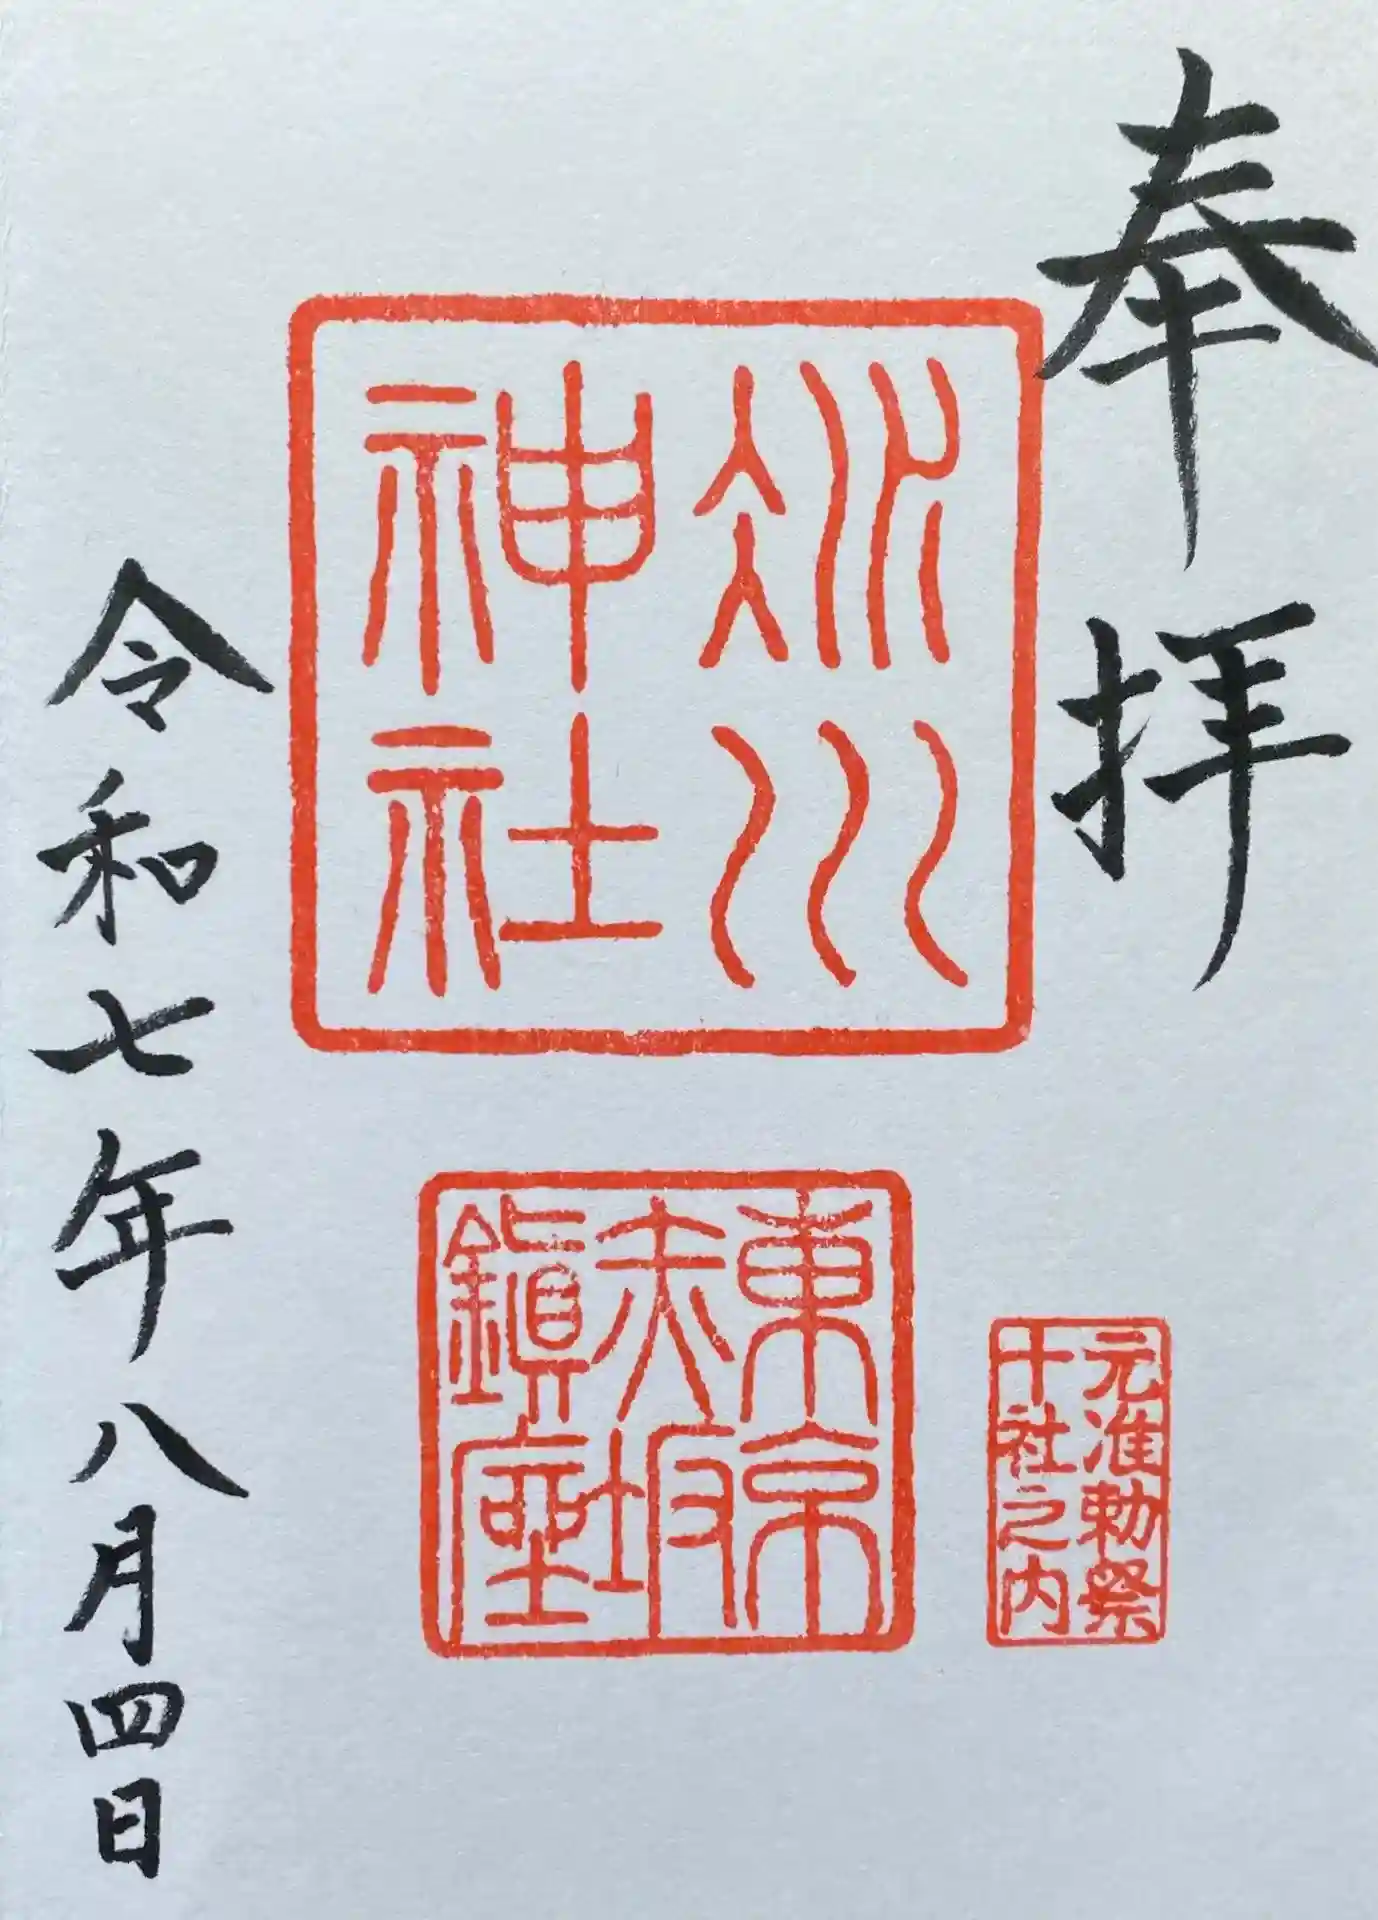 奉拝
氷川
神社
東京
赤坂
鎮座
元准勅祭
十社之内
令和七年八月四日